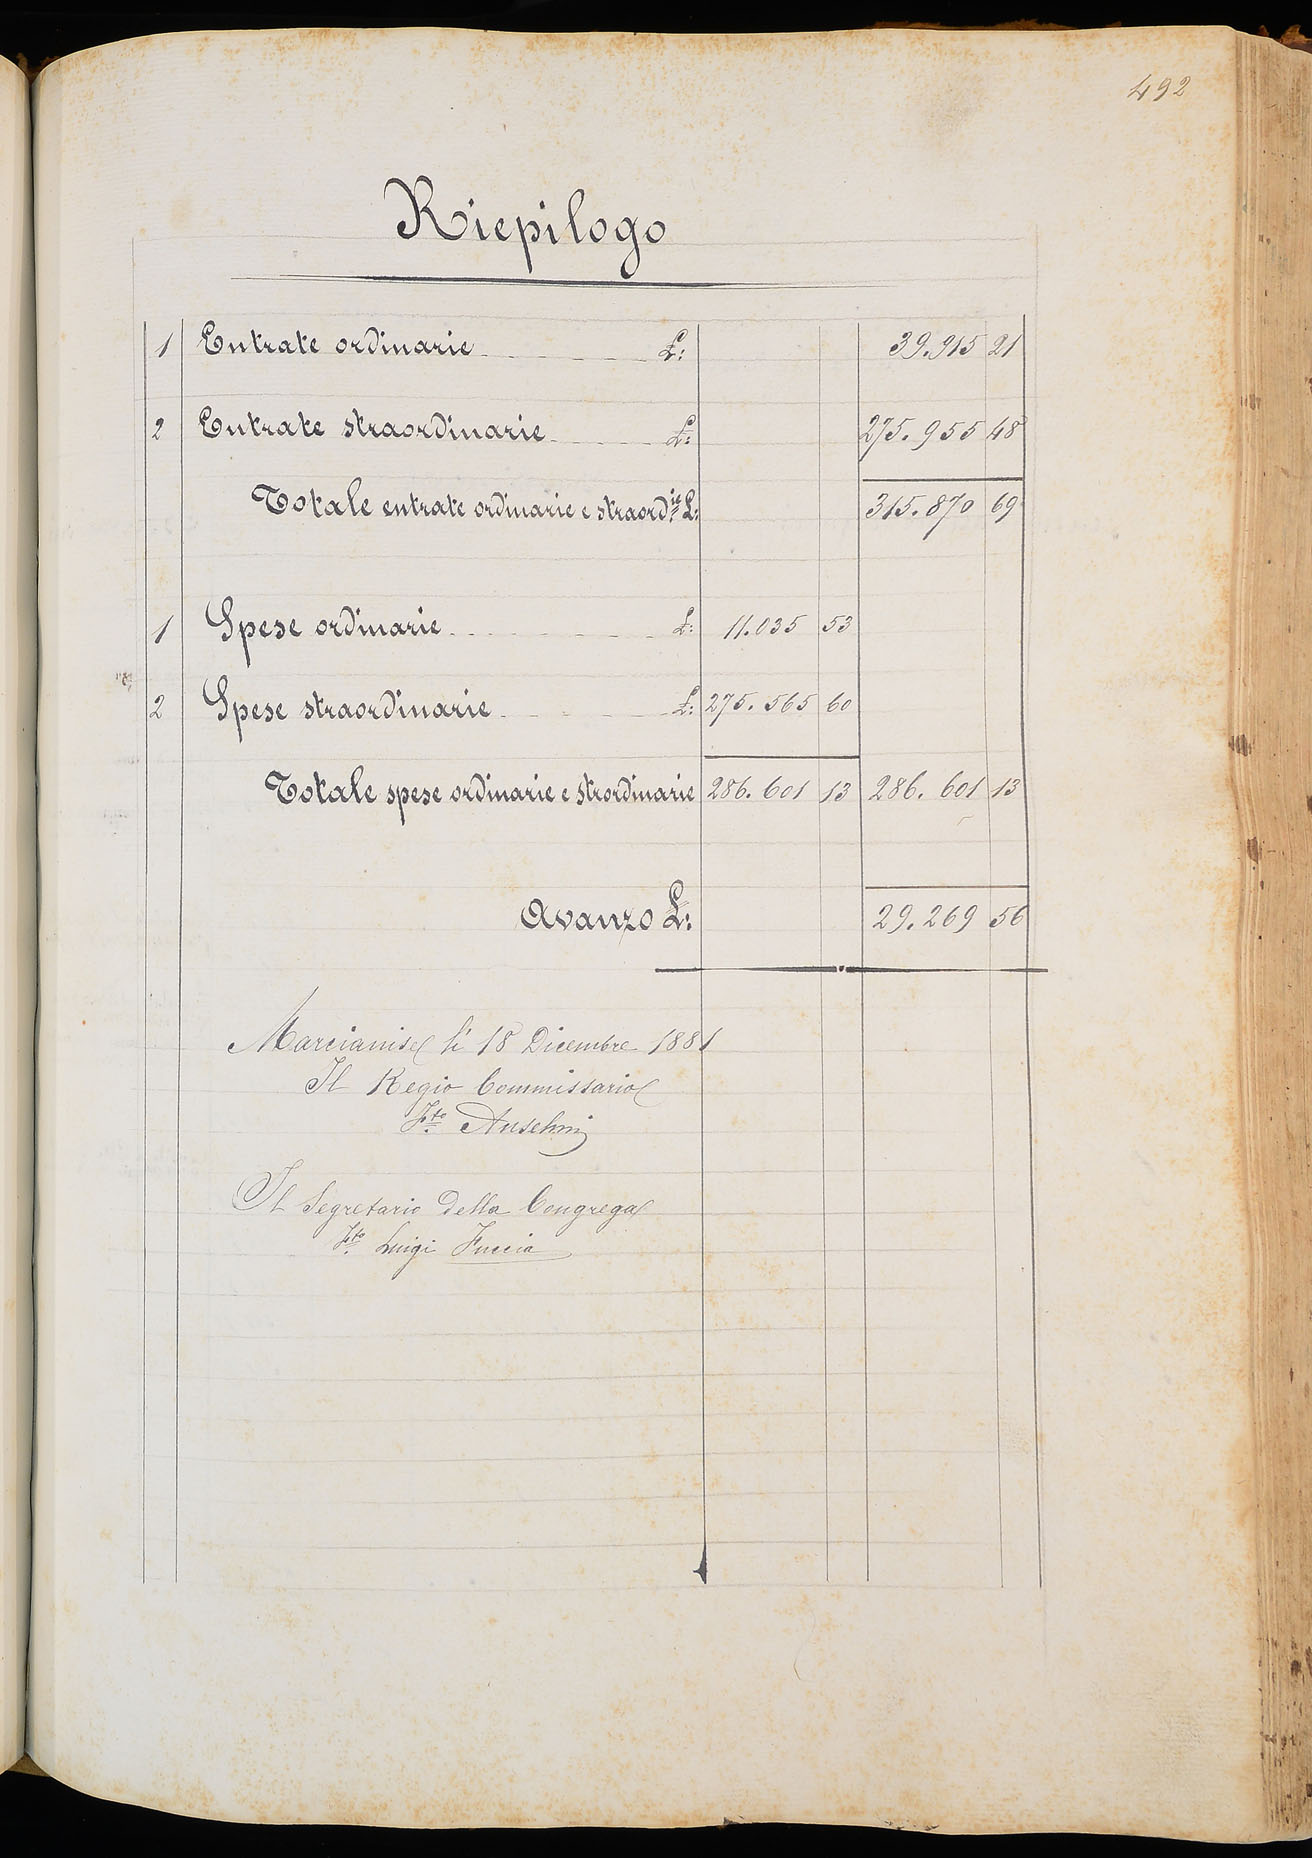 492
Riepilogo
1 Entrate ordinarie £: 39.915 21
2 Entrate straordinarie £: 275.955 48
Totale entrate ordinarie e straord.ie £: 315.870 69
1 Spese ordinarie £: 11.035 53
2 Spese straordinarie £: 275.565 60
Totale spese ordinarie e strordinarie 286.601 13 286.601 13
Avanzo £: 29.269 56
Marcianise lì 18 Dicembre 1881
Il Regio Commissario
F.to Anselmi
Il Segretario della Congrega
F.to Luigi Fuccia